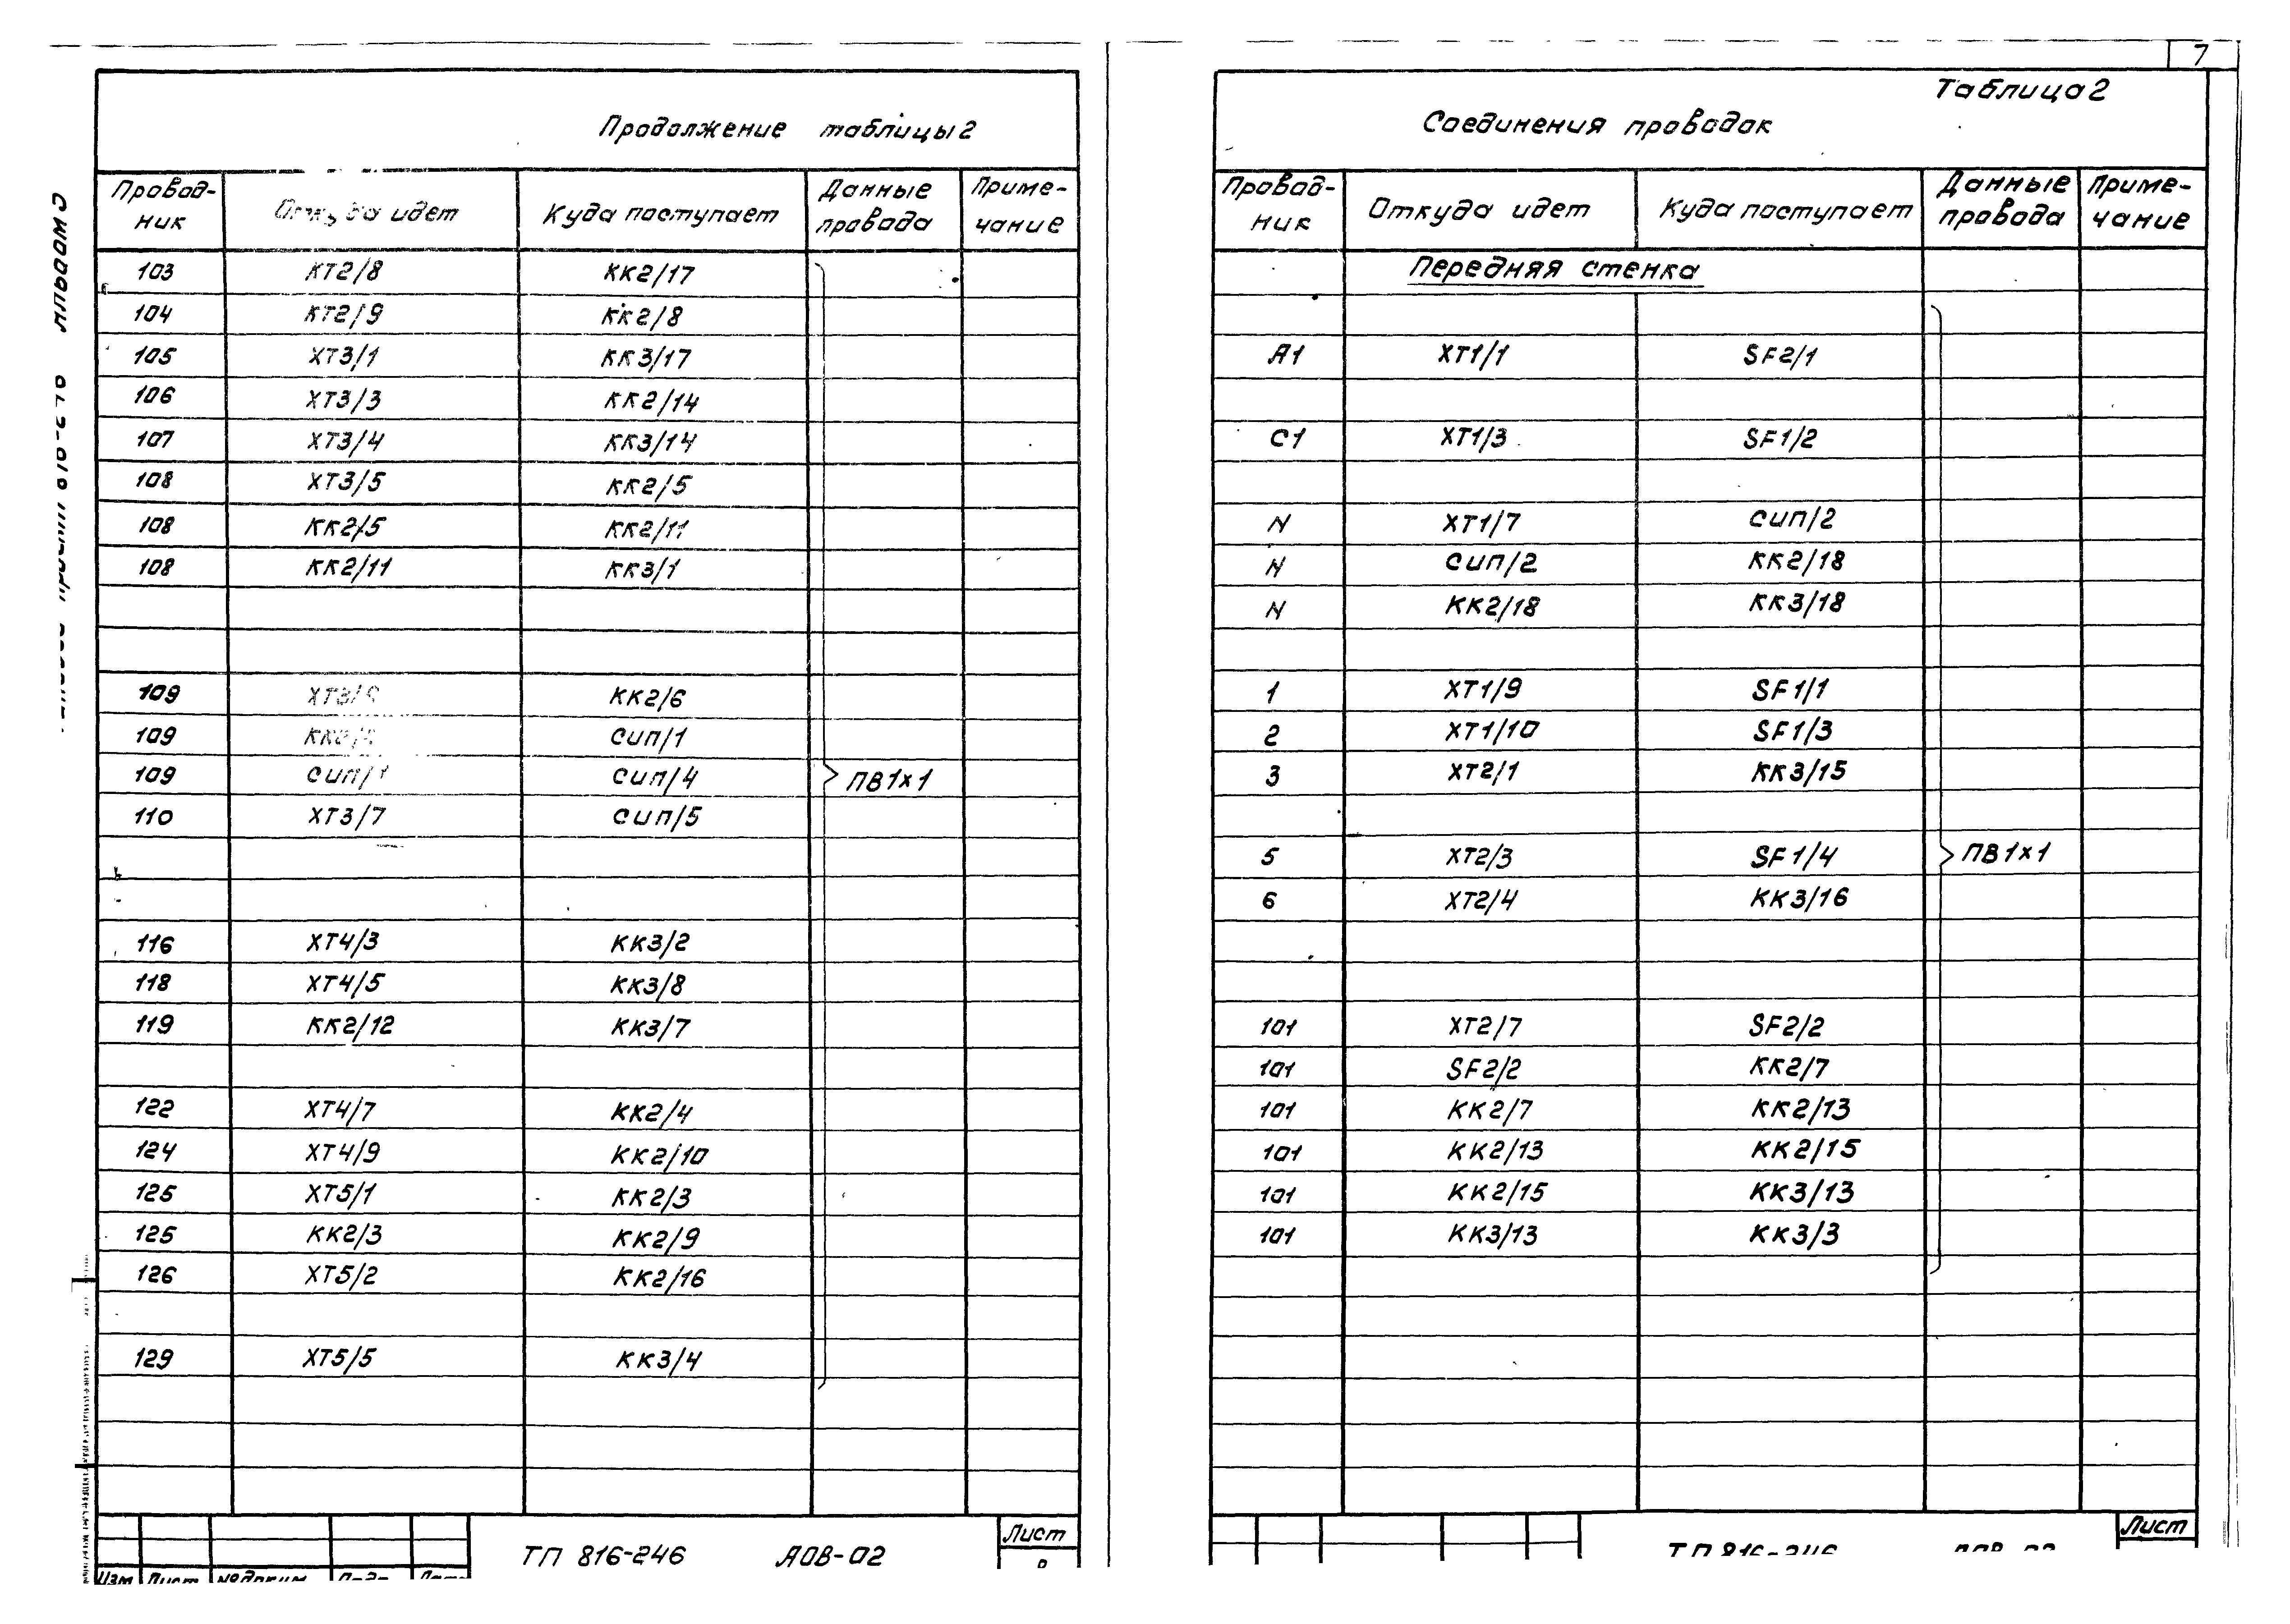 7
Продолжение таблицы 2
Провод-ник | Откуда идет | Куда поступает | Данные провода | Приме-чание
103 КТ2/8 КК2/17
104 КТ2/9 КК2/8
105 ХТ3/1 КК3/17
106 ХТ3/3 КК2/14
107 ХТ3/4 КК3/14
108 ХТ3/5 КК2/5
108 КК2/5 КК2/11
108 КК2/11 КК3/1
109 КК2/6
109 СИП/1
109 СИП/1 СИП/4 ПВ1х1
110 ХТ3/7 СИП/5
116 ХТ4/3 КК3/2
118 ХТ4/5 КК3/8
119 КК2/12 КК3/7
122 ХТ4/7 КК2/4
124 ХТ4/9 КК2/10
125 ХТ5/1 КК2/3
125 КК2/3 КК2/9
126 ХТ5/2 КК2/16
129 ХТ5/5 КК3/4
ТП 816-246 АОВ-02 Лист
Изм Лист №докум. Подп. Дата
Таблица 2
Соединения проводок
Провод-ник | Откуда идет | Куда поступает | Данные провода | Приме-чание
Передняя стенка
А1 ХТ1/1 SF2/1
С1 ХТ1/3 SF1/2
N ХТ1/7 СИП/2
N СИП/2 КК2/18
N КК2/18 КК3/18
1 ХТ1/9 SF1/1
2 ХТ1/10 SF1/3
3 ХТ2/1 КК3/15
5 ХТ2/3 SF1/4 ПВ1х1
6 ХТ2/4 КК3/16
101 ХТ2/7 SF2/2
101 SF2/2 КК2/7
101 КК2/7 КК2/13
101 КК2/13 КК2/15
101 КК2/15 КК3/13
101 КК3/13 КК3/3
ТП 816-246 АОВ-02 Лист